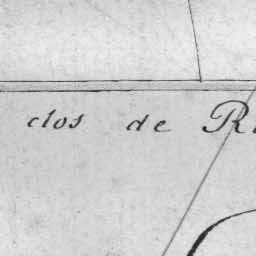 clos de